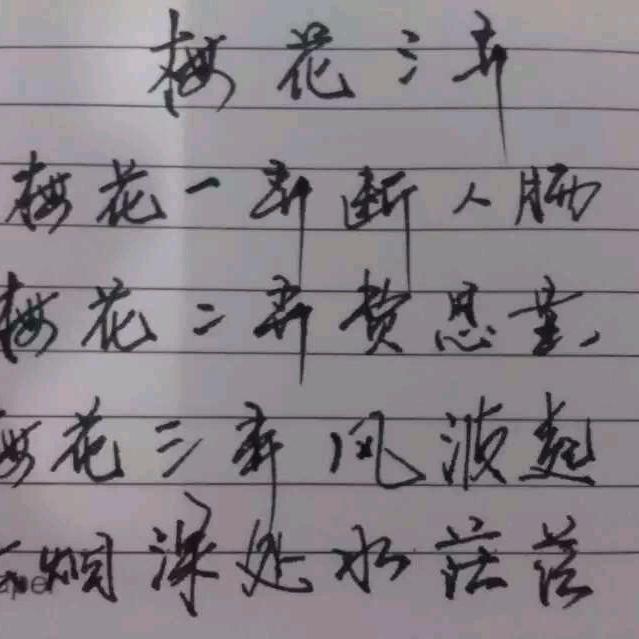 梅花三弄
梅花一弄断人肠
梅花二弄费思量
梅花三弄风波起
云烟深处水茫茫